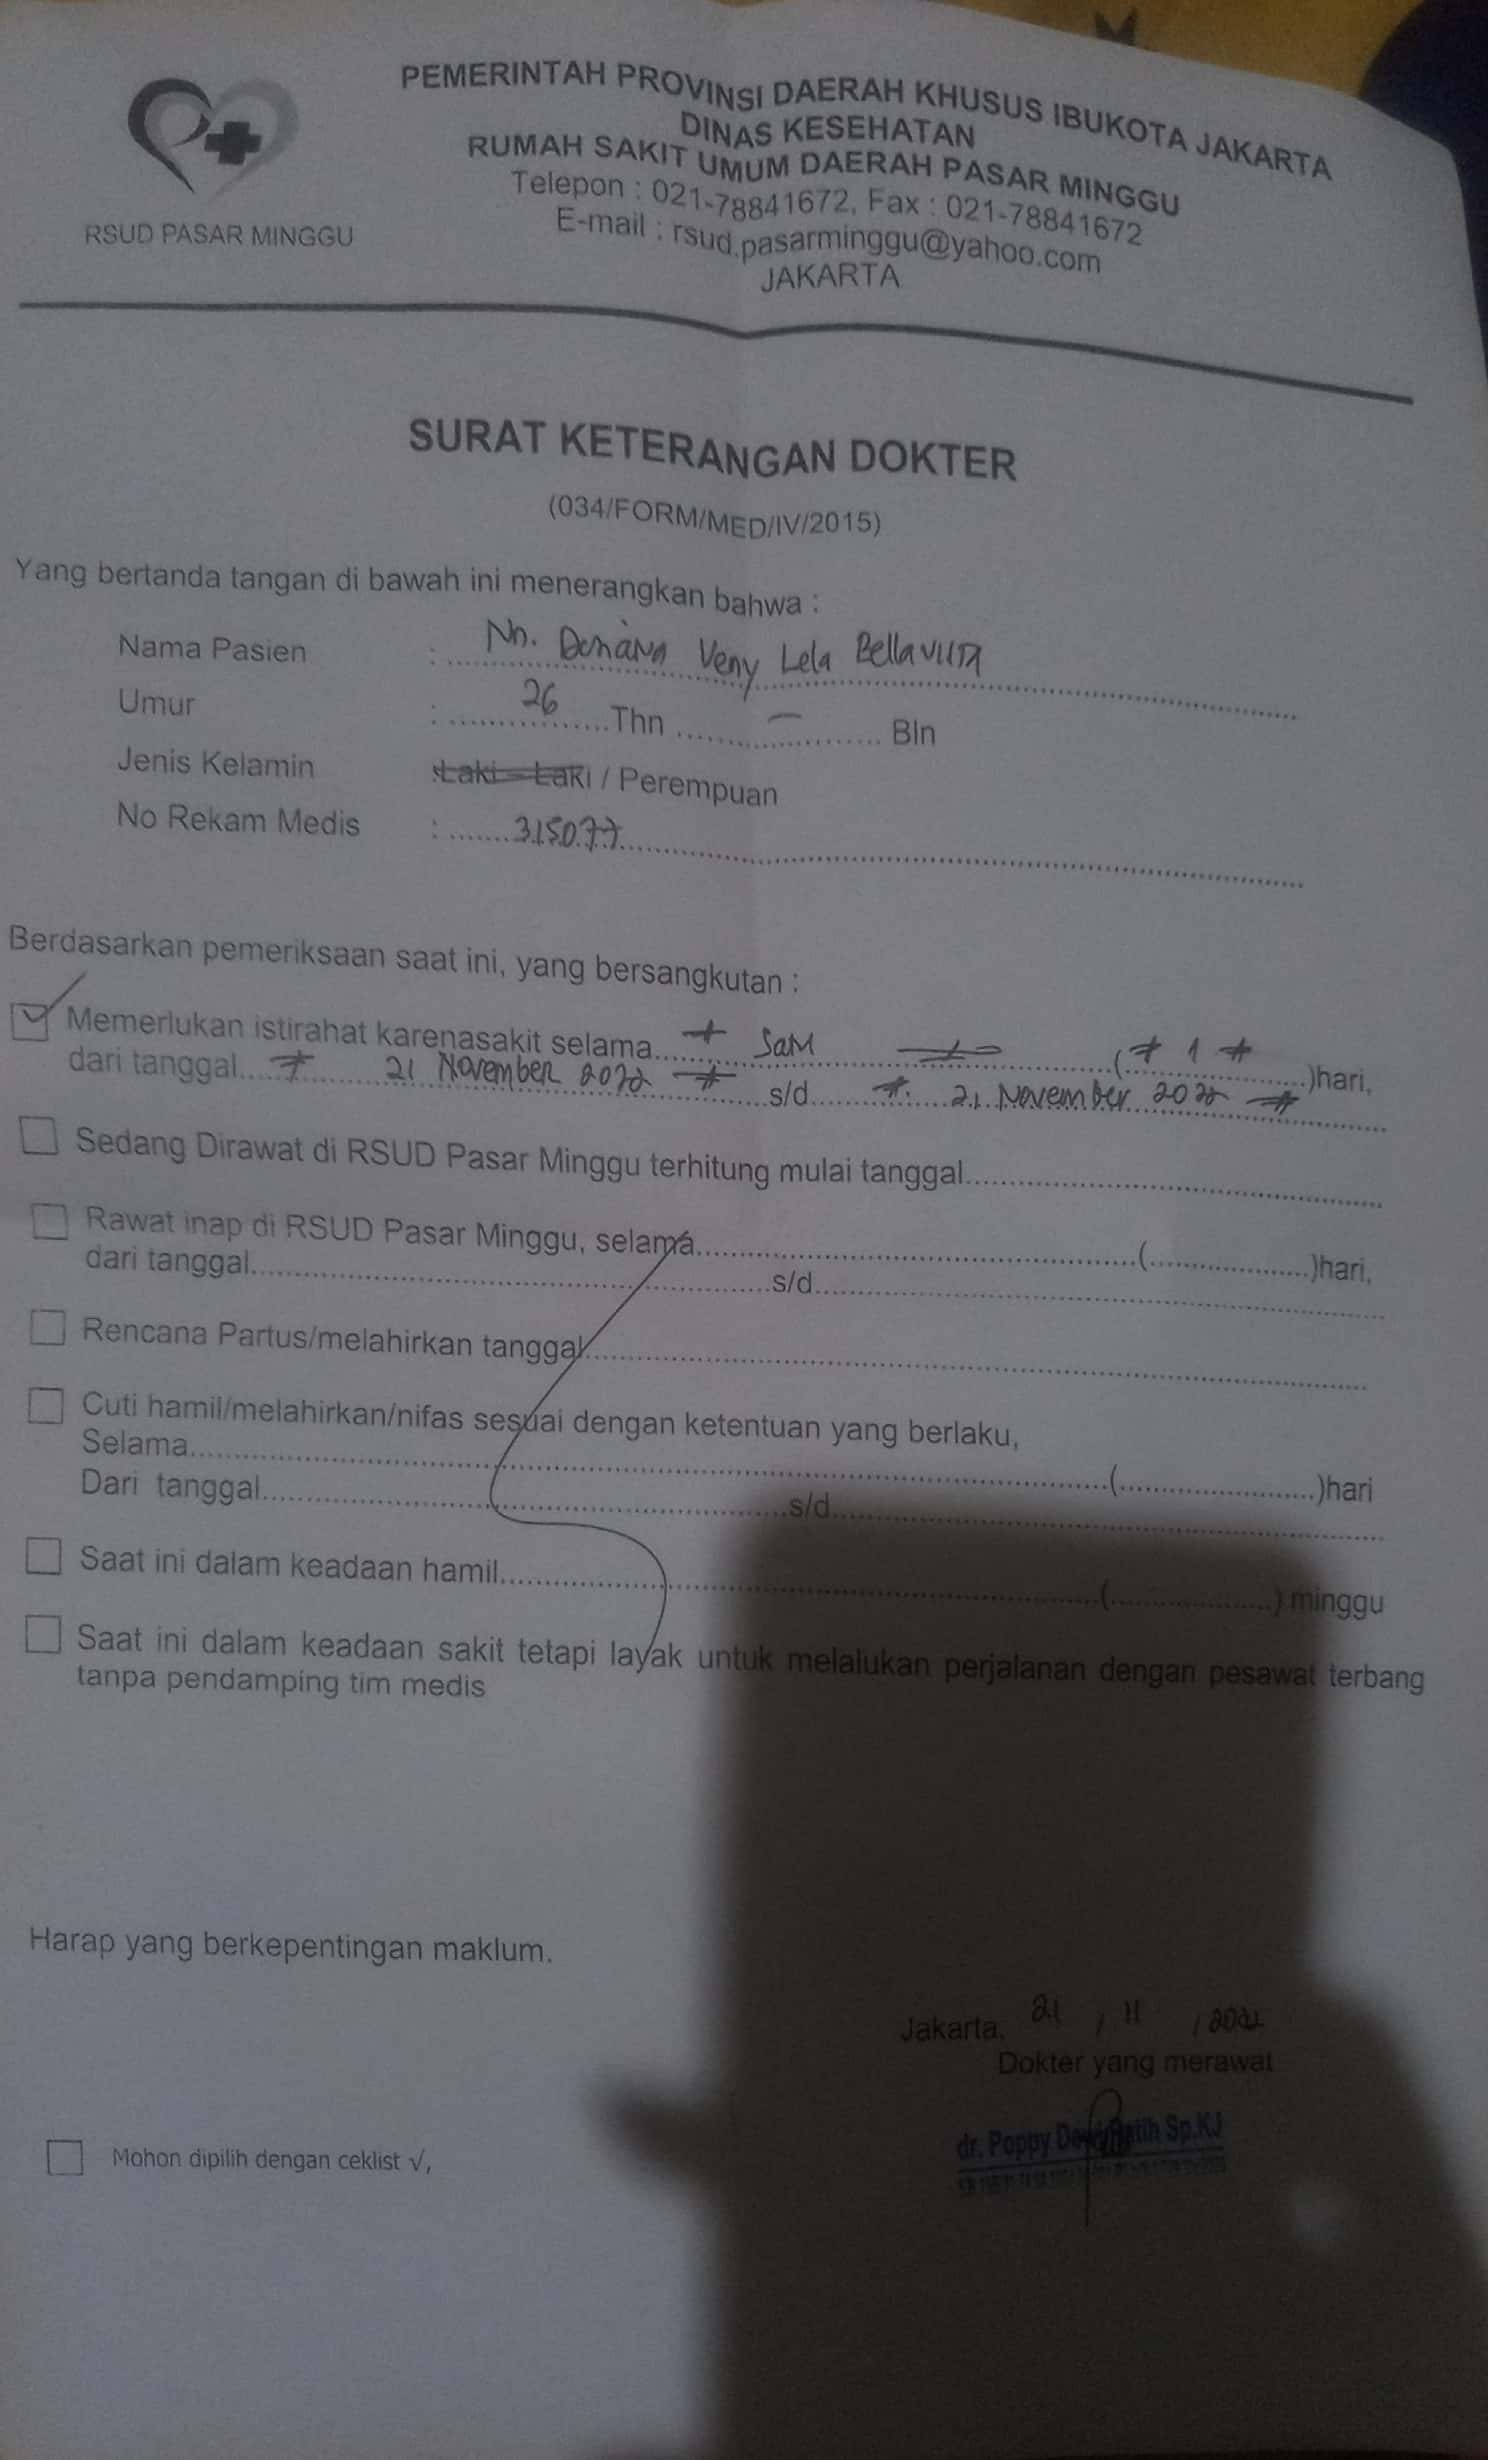 PEMERINTAH PROVINSI DAERAH KHUSUS IBUKOTA JAKARTA
DINAS KESEHATAN
RUMAH SAKIT UMUM DAERAH PASAR MINGGU
Telepon : 021-78841672, Fax : 021-78841672
E-mail : rsud.pasarminggu@yahoo.com
JAKARTA
RSUD PASAR MINGGU
SURAT KETERANGAN DOKTER
(034/FORM/MED/IV/2015)
Yang bertanda tangan di bawah ini menerangkan bahwa :
Nama Pasien : Nn. Veny Lela
Umur : 26 Thn - Bln
Jenis Kelamin : Laki - Laki / Perempuan
No Rekam Medis : 315077
Berdasarkan pemeriksaan saat ini, yang bersangkutan :
Memerlukan istirahat karenasakit selama ( 1 )hari,
dari tanggal 21 November 2022 s/d 21 November 2022
Sedang Dirawat di RSUD Pasar Minggu terhitung mulai tanggal
Rawat inap di RSUD Pasar Minggu, selama ( )hari,
dari tanggal s/d
Rencana Partus/melahirkan tanggal
Cuti hamil/melahirkan/nifas sesuai dengan ketentuan yang berlaku,
Selama ( )hari
Dari tanggal s/d
Saat ini dalam keadaan hamil ( ) minggu
Saat ini dalam keadaan sakit tetapi layak untuk melalukan perjalanan dengan pesawat terbang
tanpa pendamping tim medis
Harap yang berkepentingan maklum.
Jakarta, 21 / 11 / 2022
Dokter yang merawat
dr. Poppy Sp.KJ
Mohon dipilih dengan ceklist √,